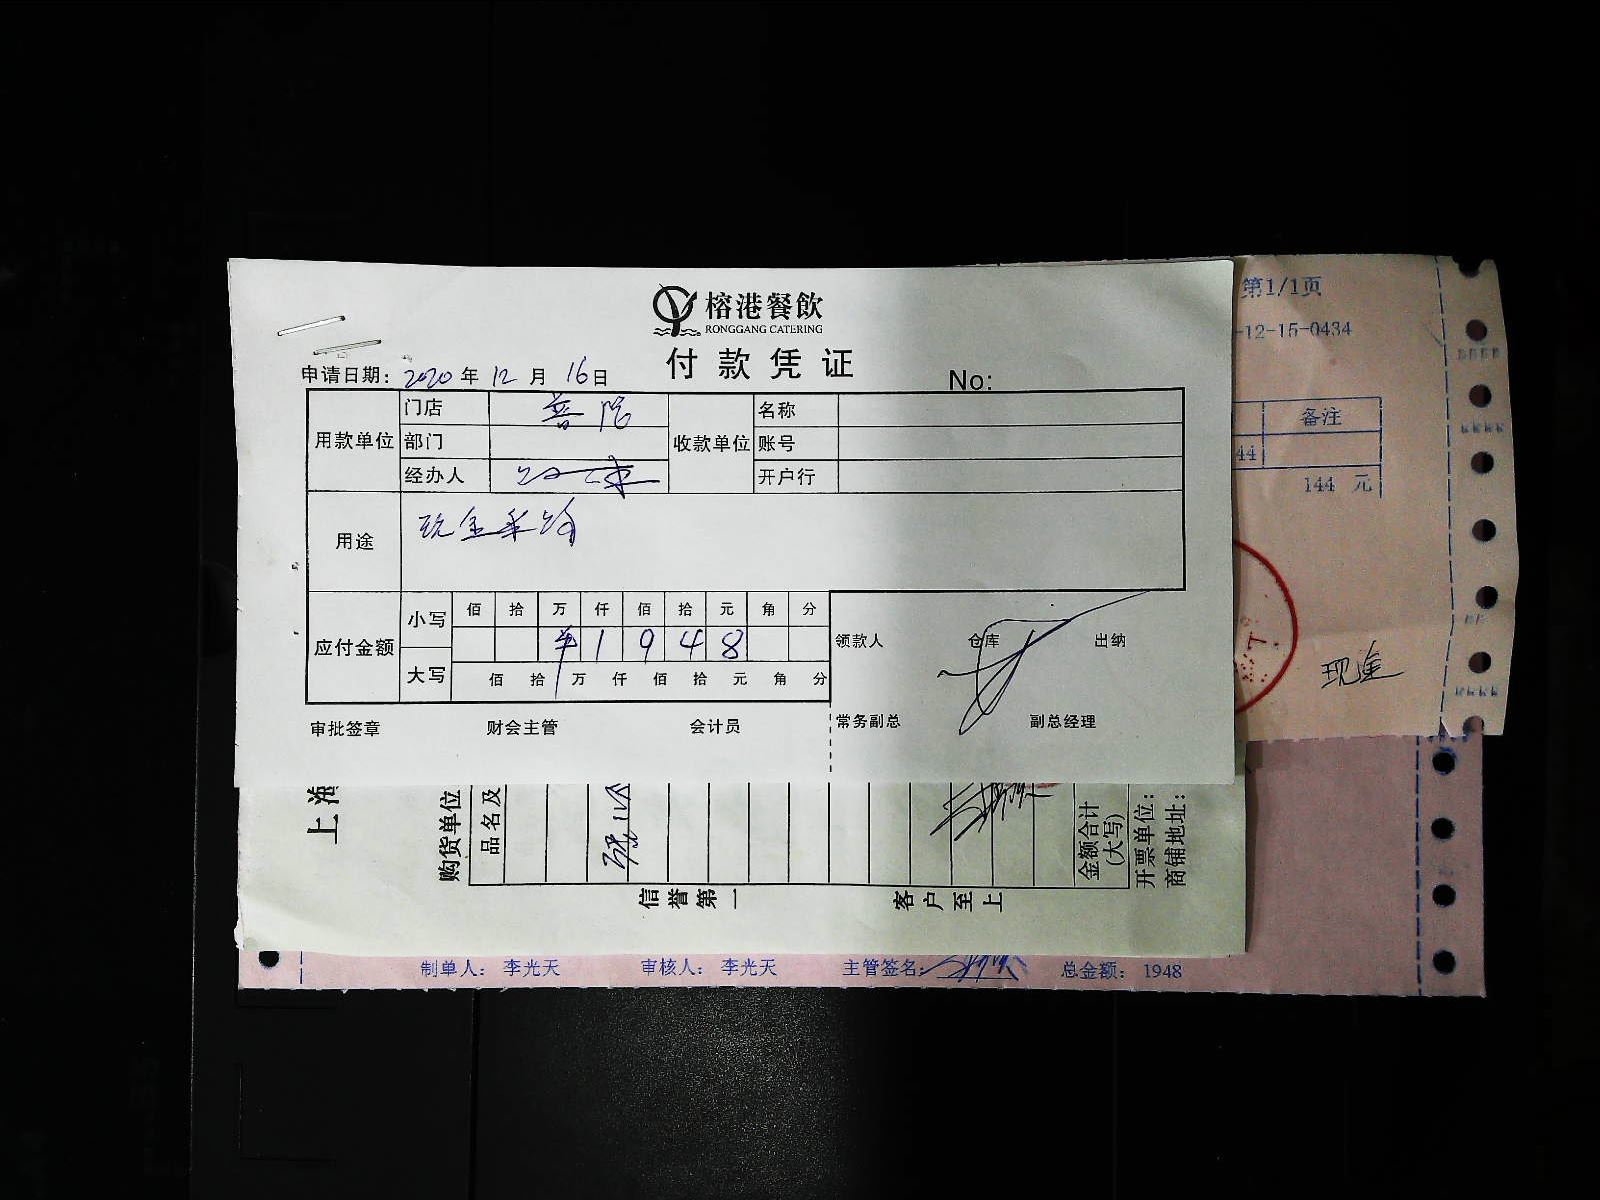 榕港餐飲
RONGGANG CATERING
付款凭证
申请日期: 2020 年 12 月 16 日
No:
用款单位 门店 普陀 收款单位 名称
部门 账号
经办人 开户行
用途 现金采购
应付金额 小写 佰 拾 万 仟 佰 拾 元 角 分
¥ 1 9 4 8
大写 佰 拾 万 仟 佰 拾 元 角 分
领款人 仓库 出纳
审批签章 财会主管 会计员 常务副总 副总经理
第1/1页
-12-15-0434
备注
44
144 元
现金
上海
购货单位
品名及
金额合计
(大写)
开票单位:
商铺地址:
信誉第一 客户至上
制单人: 李光天 审核人: 李光天 主管签名: 总金额: 1948